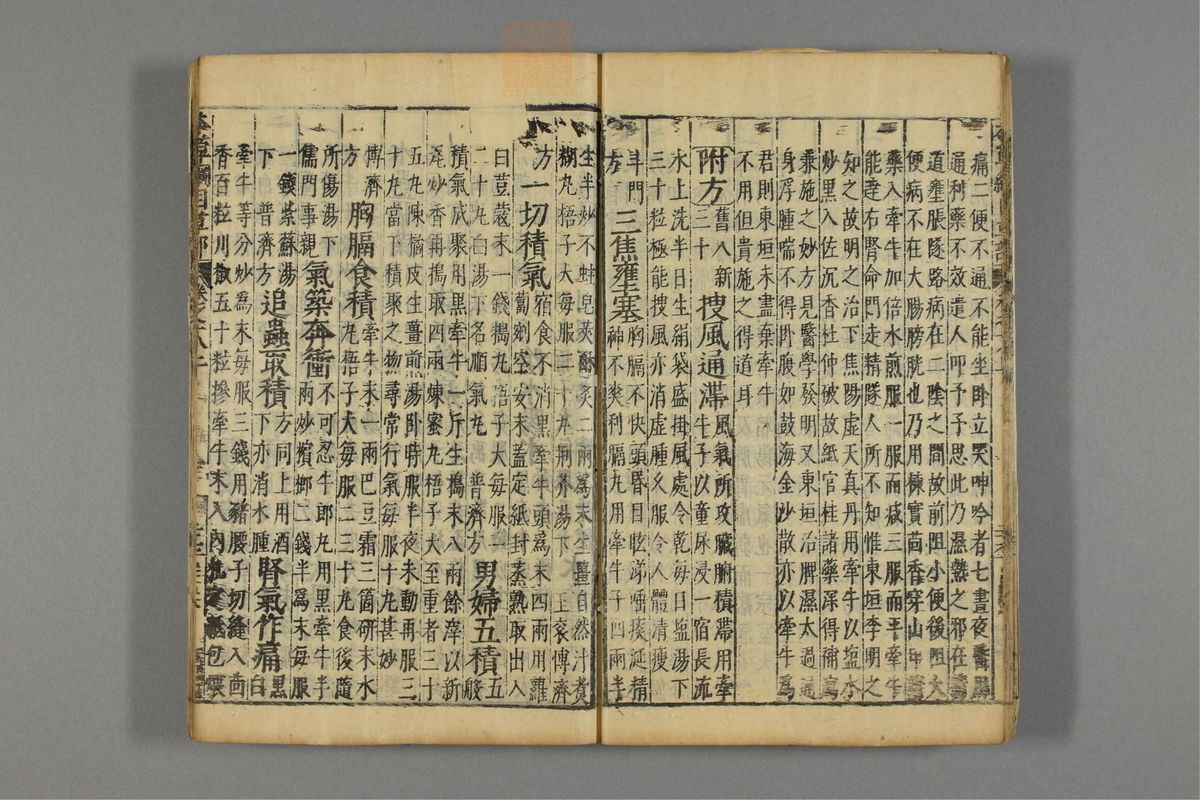 痛二便不通不能坐卧立哭呻吟者七晝夜醫用
通利藥不效遣人叩予予思此乃濕熱之邪在精
道壅脹隧路病在二陰之間故前阻小便後阻大
便病不在大腸膀胱也乃用楝實茴香穿山甲諸
藥入牽牛加倍水煎服一服而减三服而平牽牛
能達右腎命門走精隧人所不知惟東垣李明之
知之故明之治下焦陽虚天真丹用牽牛以塩水
炒黑入佐沉香杜仲破故紙官桂諸藥深得補瀉
兼施之妙方見醫學發明又東垣治脾濕太過通
身浮腫喘不得卧腹如鼓海金沙散亦以牽牛爲
君則東垣未盡棄牽牛
不用但貴施之得道耳
附方舊八新三十 搜風通滯風氣所攻臟腑積滯用牽
牛子以童尿浸一宿長流
水上洗半日生絹袋盛掛風處令乾每日塩湯下
三十粒極能搜風亦消虚腫久服令人體清瘦
斗門方 三焦壅塞胸膈不快頭昏目眩涕唾痰涎精
神不爽利膈丸用牽牛子四兩半
生半炒不蛀皂莢酥炙二兩爲末生薑自然汁煮
糊丸梧子大每服二十丸荆芥湯下王衮傅濟
方 一切積氣宿食不消黑牽牛頭爲末四兩用蘿
蔔剜空安末蓋定紙封蒸熟取出入
白荳蔲末一錢搗丸梧子大每服
二十丸白湯下名順氣丸普濟方 男婦五積五般
積氣成聚用黑牽牛一斤生搗末八兩餘滓以新
瓦炒香再搗取四兩煉蜜丸梧子大至重者三十
五丸陳橘皮生薑煎湯卧時服半夜未動再服三
十丸當下積聚之物尋常行氣每服十丸甚妙
傅濟方 胸膈食積牽牛末一兩巴豆霜三箇研末水
丸梧子大每服二三十丸食後隨
所傷湯下儒門事親 氣築奔衝不可忍牛郎丸用黑牽牛半
兩炒檳榔二錢半爲末每服
一錢紫蘇湯下普濟方 追蟲取積方同上用酒
下亦消水腫 腎氣作痛黑白
牽牛等分炒爲末每服三錢用豬腰子切縫入茴
香百粒川椒五十粒摻牽牛末入內